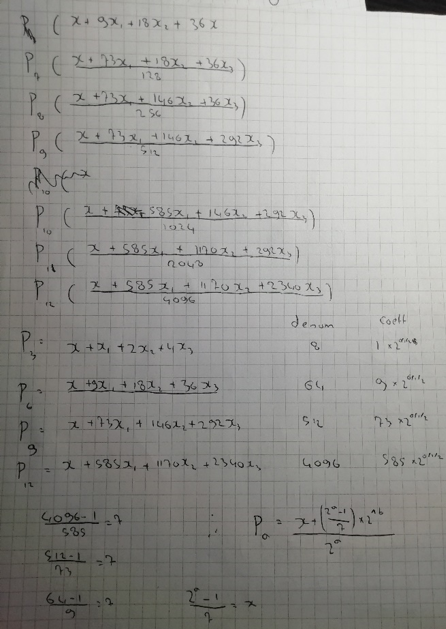 ( x + 9x₁ + 18x₂ + 36x
P₇ ( x + 73x₁ + 18x₂ + 36x₃ )
128
P₈ ( x + 73x₁ + 146x₂ + 36x₃ )
256
P₉ ( x + 73x₁ + 146x₂ + 292x₃ )
512
P₁₀ ( x + 585x₁ + 146x₂ + 292x₃ )
1024
P₁₁ ( x + 585x₁ + 1170x₂ + 292x₃ )
2048
P₁₂ ( x + 585x₁ + 1170x₂ + 2340x₃ )
4096
denum coeff
P₃ = x + x₁ + 2x₂ + 4x₃ 8
P₆ = x + 9x₁ + 18x₂ + 36x₃ 64 9 × 2
P₉ = x + 73x₁ + 146x₂ + 292x₃ 512 73 × 2
P₁₂ = x + 585x₁ + 1170x₂ + 2340x₃ 4096 585 × 2
4096-1 / 585 = 7 ∴ Pₐ = x + (2ᵃ-1 / 7) × 2 / 2ᵃ
512-1 / 73 = 7
64-1 / 9 = 7 2ᵃ-1 / 7 = x